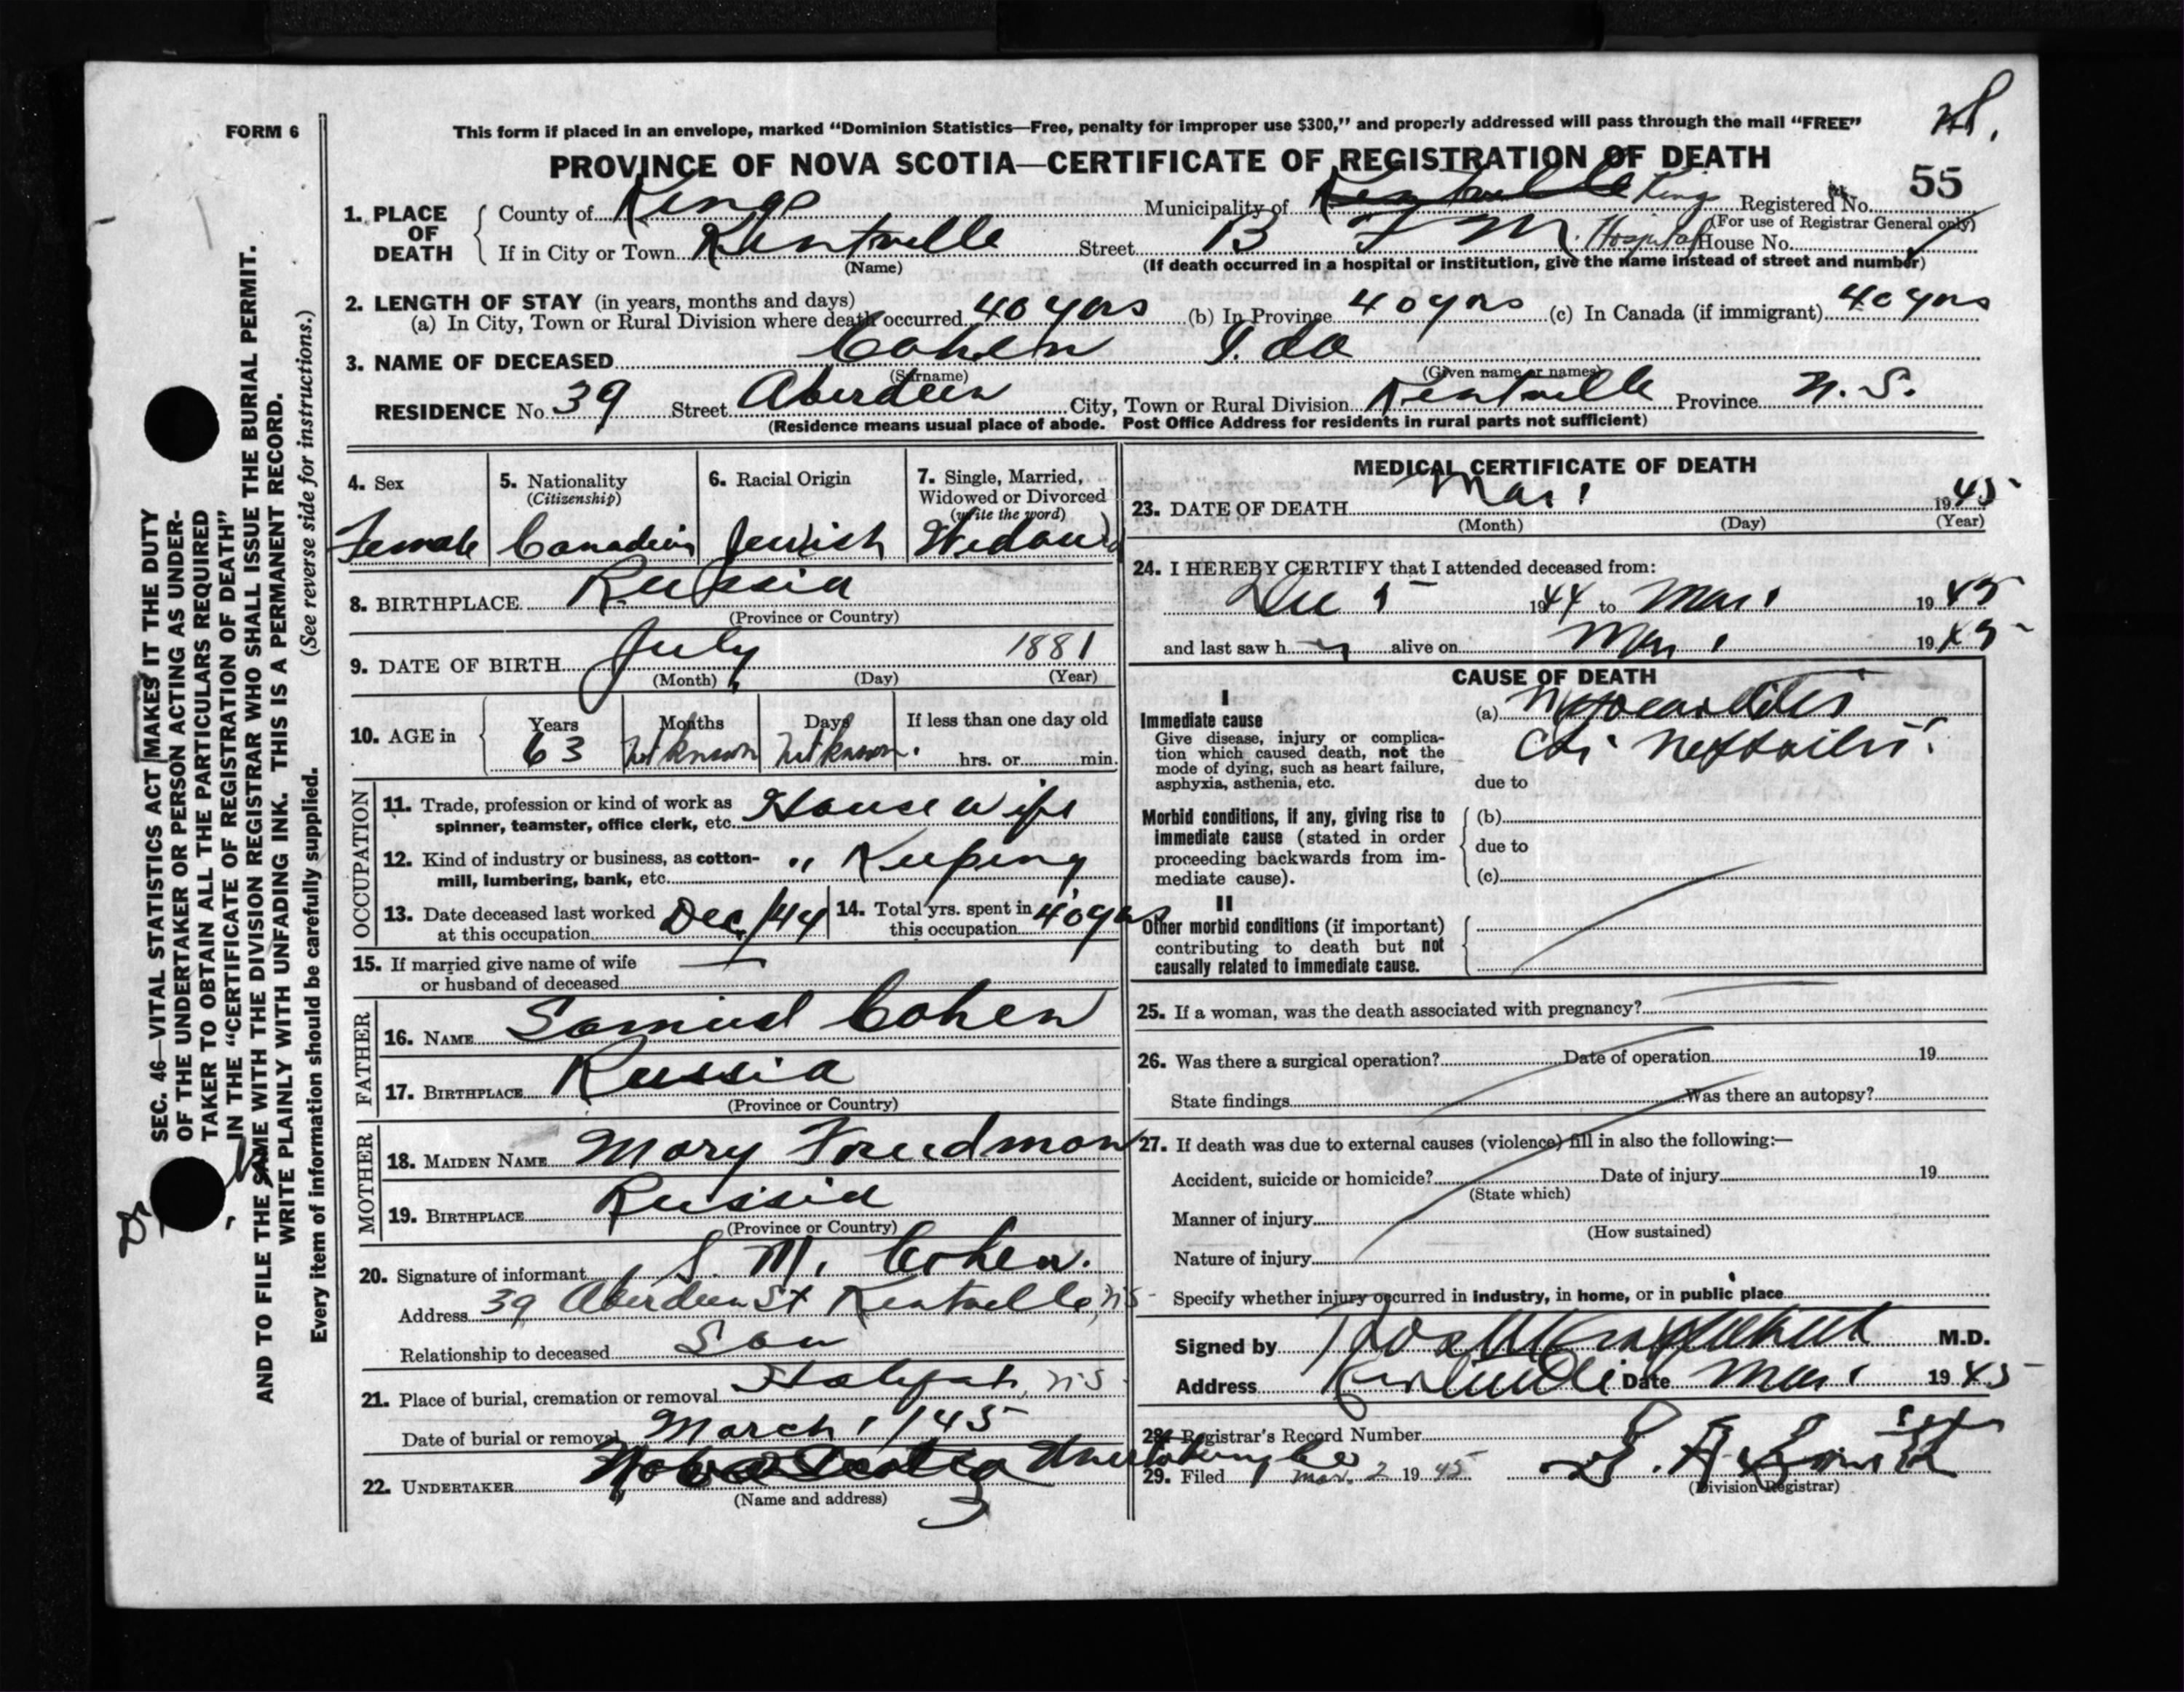 FORM 6
This form if placed in an envelope, marked “Dominion Statistics—Free, penalty for improper use $300,” and properly addressed will pass through the mail “FREE”
PROVINCE OF NOVA SCOTIA—CERTIFICATE OF REGISTRATION OF DEATH
55
1. PLACE OF DEATH
County of Kings Municipality of Kentville Kings Registered No.
(For use of Registrar General only)
If in City or Town Kentville Street B F M Hospital House No.
(Name) (If death occurred in a hospital or institution, give the name instead of street and number)
2. LENGTH OF STAY (in years, months and days)
(a) In City, Town or Rural Division where death occurred 40 yrs (b) In Province 40 yrs (c) In Canada (if immigrant) 40 yrs
3. NAME OF DECEASED Cohen Ida
(Surname) (Given name or names)
RESIDENCE No 39 Street Aberdeen City, Town or Rural Division Kentville Province N. S.
(Residence means usual place of abode. Post Office Address for residents in rural parts not sufficient)
4. Sex
Female
5. Nationality
(Citizenship)
Canadian
6. Racial Origin
Jewish
7. Single, Married,
Widowed or Divorced
(write the word)
Widowed
8. BIRTHPLACE Russia
(Province or Country)
9. DATE OF BIRTH July 1881
(Month) (Day) (Year)
10. AGE in
Years Months Days If less than one day old
63 Unknown Unknown. hrs. or min.
OCCUPATION
11. Trade, profession or kind of work as
spinner, teamster, office clerk, etc. House wife
12. Kind of industry or business, as cotton-
mill, lumbering, bank, etc. " Keeping
13. Date deceased last worked
at this occupation Dec/44
14. Total yrs. spent in
this occupation 40 yrs
15. If married give name of wife
or husband of deceased —
FATHER
16. NAME Samuel Cohen
17. BIRTHPLACE Russia
(Province or Country)
MOTHER
18. MAIDEN NAME Mary Freedman
19. BIRTHPLACE Russia
(Province or Country)
20. Signature of informant S. M. Cohen.
Address 39 Aberdeen St Kentville, NS
Relationship to deceased Son
21. Place of burial, cremation or removal Halifax, NS
Date of burial or removal March 1/45
22. UNDERTAKER Nova Scotia Undertaking Co
(Name and address)
MEDICAL CERTIFICATE OF DEATH
23. DATE OF DEATH Mar 1 1945
(Month) (Day) (Year)
24. I HEREBY CERTIFY that I attended deceased from:
Dec 5 1944 to Mar 1 1945
and last saw her alive on Mar 1 1945
CAUSE OF DEATH
I
Immediate cause
Give disease, injury or complica-
tion which caused death, not the
mode of dying, such as heart failure,
asphyxia, asthenia, etc.
(a) Myocarditis
Chr Nephritis.
due to
Morbid conditions, if any, giving rise to
immediate cause (stated in order
proceeding backwards from im-
mediate cause).
(b)
due to
(c)
II
Other morbid conditions (if important)
contributing to death but not
causally related to immediate cause.
25. If a woman, was the death associated with pregnancy?
26. Was there a surgical operation? Date of operation 19
State findings Was there an autopsy?
27. If death was due to external causes (violence) fill in also the following:—
Accident, suicide or homicide? Date of injury 19
(State which)
Manner of injury
(How sustained)
Nature of injury
Specify whether injury occurred in industry, in home, or in public place
Signed by M.D.
Address Kentville Date Mar 1 1945
28. Registrar's Record Number
29. Filed Mar. 2 1945
(Division Registrar)
SEC. 46—VITAL STATISTICS ACT MAKES IT THE DUTY
OF THE UNDERTAKER OR PERSON ACTING AS UNDER-
TAKER TO OBTAIN ALL THE PARTICULARS REQUIRED
IN THE “CERTIFICATE OF REGISTRATION OF DEATH”
AND TO FILE THE SAME WITH THE DIVISION REGISTRAR WHO SHALL ISSUE THE BURIAL PERMIT.
WRITE PLAINLY WITH UNFADING INK. THIS IS A PERMANENT RECORD.
Every item of information should be carefully supplied. (See reverse side for instructions.)